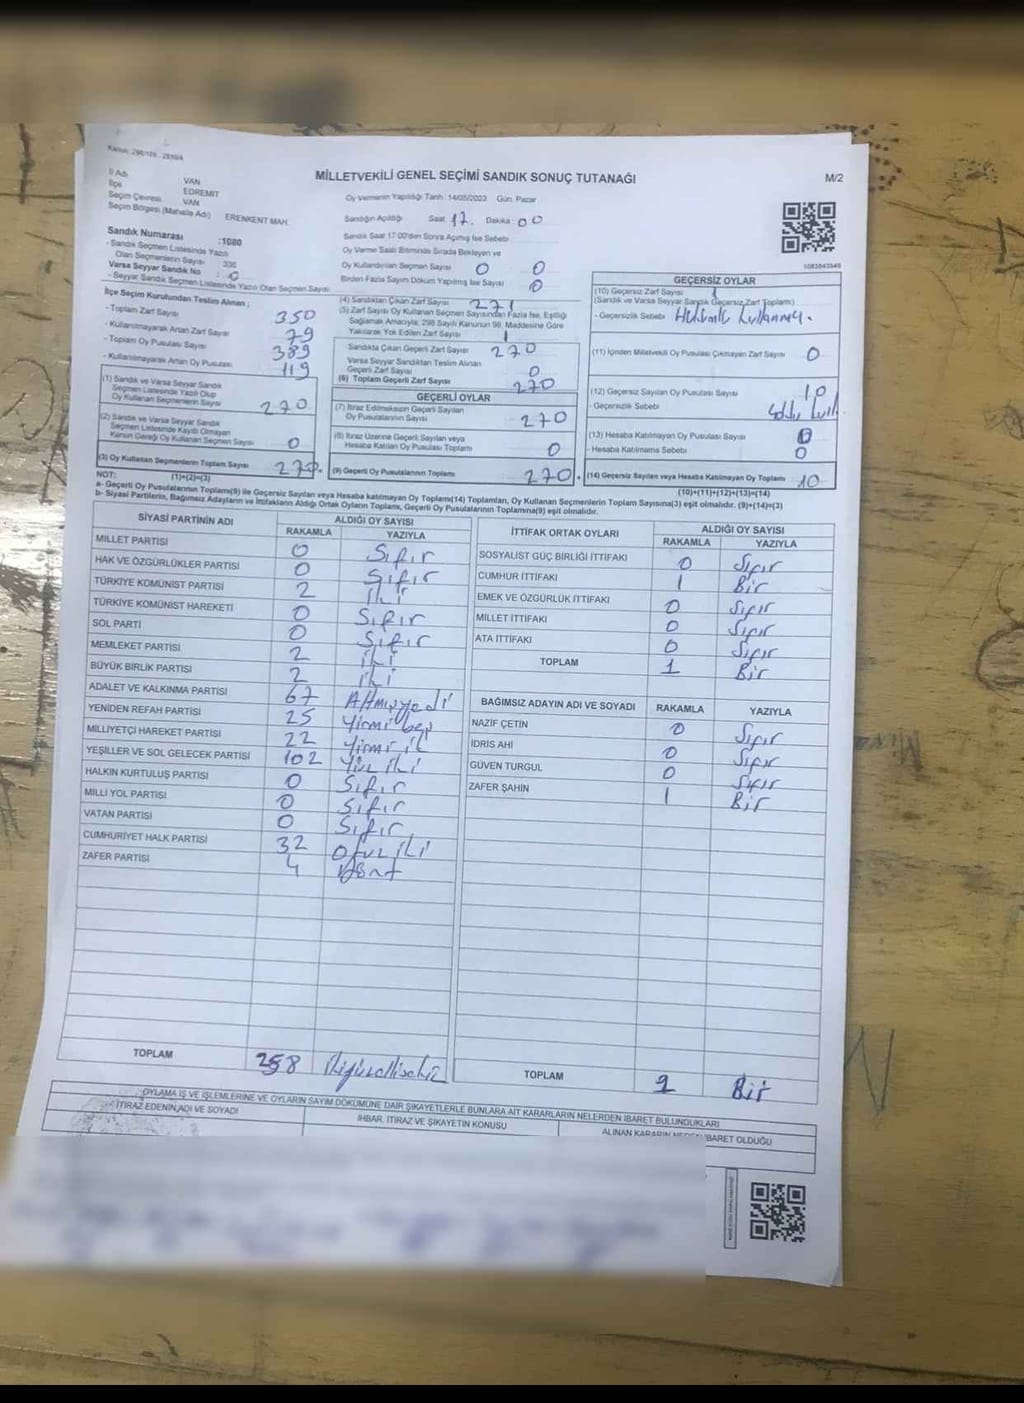 Kanun: 298/105 - 2839/4
MİLLETVEKİLİ GENEL SEÇİMİ SANDIK SONUÇ TUTANAĞI
M/2
İl Adı VAN
İlçe EDREMIT
Seçim Çevresi VAN
Seçim Bölgesi (Mahalle Adı) ERENKENT MAH.
Sandık Numarası :1080
- Sandık Seçmen Listesinde Yazılı
Olan Seçmenlerin Sayısı 336
Varsa Seyyar Sandık No : 0
- Seyyar Sandık Seçmen Listesinde Yazılı Olan Seçmen Sayısı
Oy Vermenin Yapıldığı Tarih: 14/05/2023 Gün: Pazar
Sandığın Açıldığı Saat 17. Dakika: 00
Sandık Saat 17:00'den Sonra Açılmış İse Sebebi
Oy Verme Saati Bitiminde Sırada Bekleyen ve
Oy Kullandırılan Seçmen Sayısı 0 0
Birden Fazla Sayım Döküm Yapılmış İse Sayısı 0
1083843849
İlçe Seçim Kurulundan Teslim Alınan ;
- Toplam Zarf Sayısı 350
- Kullanılmayarak Artan Zarf Sayısı 79
- Toplam Oy Pusulası Sayısı 389
- Kullanılmayarak Artan Oy Pusulası 119
(1) Sandık ve Varsa Seyyar Sandık
Seçmen Listesinde Yazılı Olup
Oy Kullanan Seçmenlerin Sayısı 270
(2) Sandık ve Varsa Seyyar Sandık
Seçmen Listesinde Kayıtlı Olmayan
Kanun Gereği Oy Kullanan Seçmen Sayısı 0
(3) Oy Kullanan Seçmenlerin Toplam Sayısı 270.
(1)+(2)=(3)
(4) Sandıktan Çıkan Zarf Sayısı 271
(5) Zarf Sayısı Oy Kullanan Seçmen Sayısından Fazla İse, Eşitliği
Sağlamak Amacıyla, 298 Sayılı Kanunun 98. Maddesine Göre
Yakılarak Yok Edilen Zarf Sayısı 1
Sandıkta Çıkan Geçerli Zarf Sayısı 270
Varsa Seyyar Sandıktan Teslim Alınan
Geçerli Zarf Sayısı 0
(6) Toplam Geçerli Zarf Sayısı 270
GEÇERLİ OYLAR
(7) İtiraz Edilmeksizin Geçerli Sayılan
Oy Pusulalarının Sayısı 270
(8) İtiraz Üzerine Geçerli Sayılan veya
Hesaba Katılan Oy Pusulası Toplamı 0
(9) Geçerli Oy Pusulalarının Toplamı 270.
GEÇERSİZ OYLAR
(10) Geçersiz Zarf Sayısı 1
(Sandık ve Varsa Seyyar Sandık Geçersiz Zarf Toplamı)
- Geçersizlik Sebebi
(11) İçinden Milletvekili Oy Pusulası Çıkmayan Zarf Sayısı 0
(12) Geçersiz Sayılan Oy Pusulası Sayısı 10
- Geçersizlik Sebebi
(13) Hesaba Katılmayan Oy Pusulası Sayısı 0
- Hesaba Katılmama Sebebi 0
(14) Geçersiz Sayılan veya Hesaba Katılmayan Oy Toplamı 10
(10)+(11)+(12)+(13)=(14)
NOT:
a- Geçerli Oy Pusulalarının Toplamı(9) ile Geçersiz Sayılan veya Hesaba katılmayan Oy Toplamı(14) Toplamları, Oy Kullanan Seçmenlerin Toplam Sayısına(3) eşit olmalıdır. (9)+(14)=(3)
b- Siyasi Partilerin, Bağımsız Adayların ve İttifakların Aldığı Ortak Oyların Toplamı, Geçerli Oy Pusulalarının Toplamına(9) eşit olmalıdır.
SİYASİ PARTİNİN ADI ALDIĞI OY SAYISI
RAKAMLA YAZIYLA
MİLLET PARTİSİ 0 Sıfır
HAK VE ÖZGÜRLÜKLER PARTİSİ 0 Sıfır
TÜRKİYE KOMÜNİST PARTİSİ 2 iki
TÜRKİYE KOMÜNİST HAREKETİ 0 Sıfır
SOL PARTİ 0 Sıfır
MEMLEKET PARTİSİ 2 iki
BÜYÜK BİRLİK PARTİSİ 2 iki
ADALET VE KALKINMA PARTİSİ 67 Altmışyedi
YENİDEN REFAH PARTİSİ 25 Yirmi beş
MİLLİYETÇİ HAREKET PARTİSİ 22 Yirmi iki
YEŞİLLER VE SOL GELECEK PARTİSİ 102 Yüz iki
HALKIN KURTULUŞ PARTİSİ 0 Sıfır
MİLLİ YOL PARTİSİ 0 Sıfır
VATAN PARTİSİ 0 Sıfır
CUMHURİYET HALK PARTİSİ 32 Otuz iki
ZAFER PARTİSİ 4 Dört
TOPLAM 258 ikiyüzellisekiz
İTTİFAK ORTAK OYLARI ALDIĞI OY SAYISI
RAKAMLA YAZIYLA
SOSYALİST GÜÇ BİRLİĞİ İTTİFAKI 0 Sıfır
CUMHUR İTTİFAKI 1 Bir
EMEK VE ÖZGÜRLÜK İTTİFAKI 0 Sıfır
MİLLET İTTİFAKI 0 Sıfır
ATA İTTİFAKI 0 Sıfır
TOPLAM 1 Bir
BAĞIMSIZ ADAYIN ADI VE SOYADI RAKAMLA YAZIYLA
NAZİF ÇETİN 0 Sıfır
İDRİS AHİ 0 Sıfır
GÜVEN TURGUL 0 Sıfır
ZAFER ŞAHİN 1 Bir
TOPLAM 1 Bir
OYLAMA İŞ VE İŞLEMLERİNE VE OYLARIN SAYIM DÖKÜMÜNE DAİR ŞİKAYETLERLE BUNLARA AİT KARARLARIN NELERDEN İBARET BULUNDUKLARI
İTİRAZ EDENİN ADI VE SOYADI
İHBAR, İTİRAZ VE ŞİKAYETİN KONUSU
ALINAN KARARIN NEDEN İBARET OLDUĞU